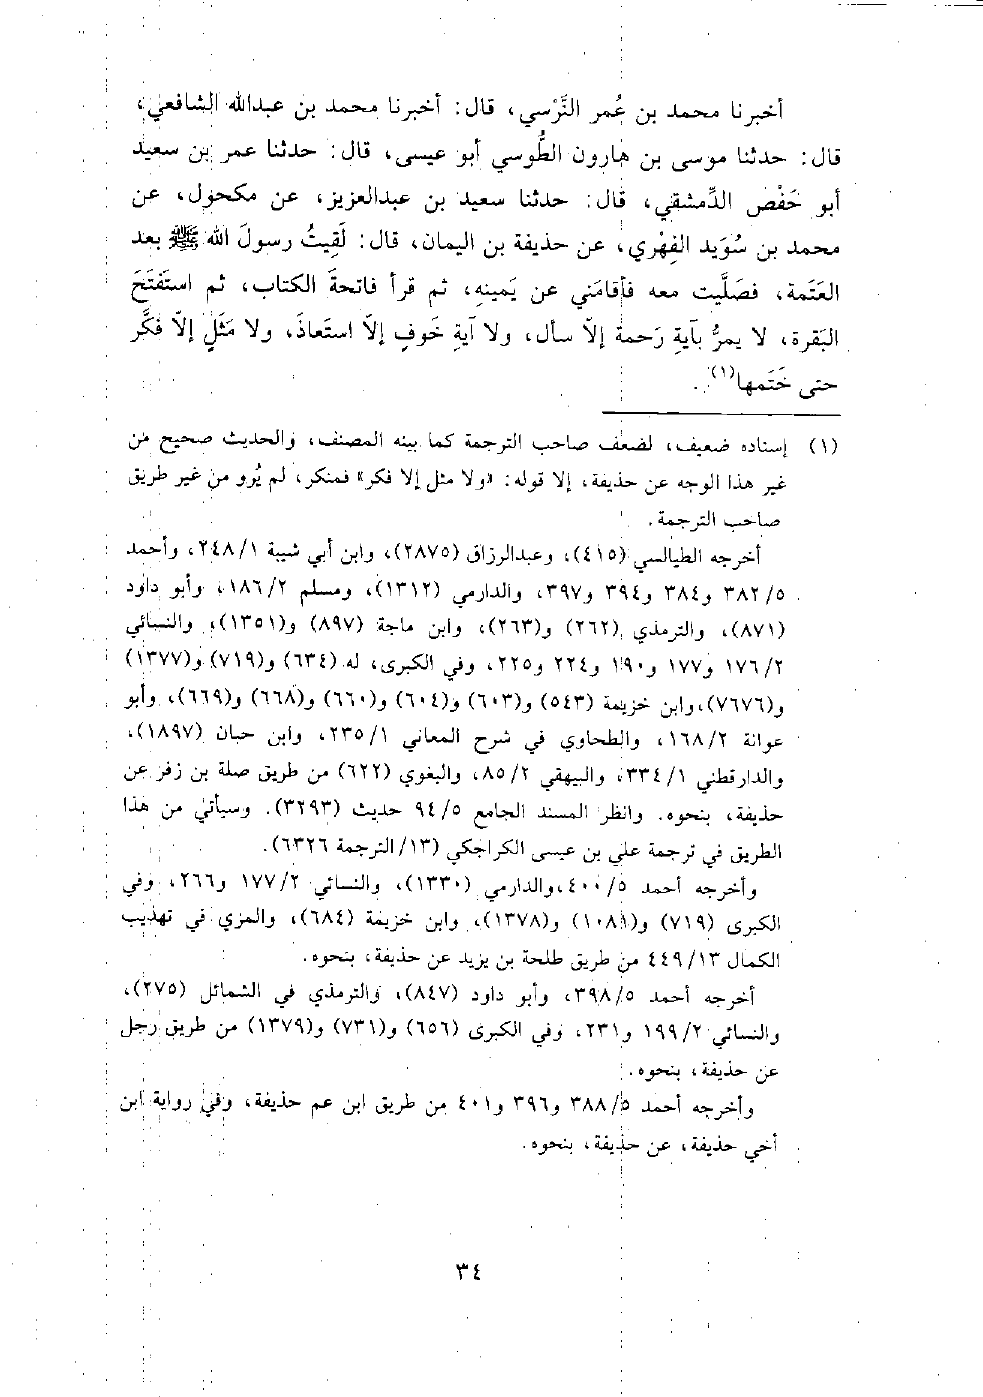 أخبرنا محمد بن عُمر النَّرْسي، قال: أخبرنا محمد بن عبدالله الشافعي،
قال: حدثنا موسى بن هارون الطُّوسي أبو عيسى، قال: حدثنا عمر بن سعيد
أبو حَفْص الدِّمشقي، قال: حدثنا سعيد بن عبدالعزيز، عن مكحول، عن
محمد بن سُوَيد الفِهْري، عن حذيفة بن اليمان، قال: لَقِيتُ رسولَ الله ﷺ بعد
العَتَمة، فصَلَّيت معه فأقامَني عن يَمينهِ، ثم قرأ فاتحةَ الكتاب، ثم استَفتَحَ
البَقرة، لا يمرُّ بآيةِ رَحمة إلاّ سأل، ولا آيةِ خَوفٍ إلاّ استَعاذَ، ولا مَثَلٍ إلاّ فكَّر
حتى خَتَمها(١).
(١) إسناده ضعيف، لضعف صاحب الترجمة كما بينه المصنف، والحديث صحيح من
غير هذا الوجه عن حذيفة، إلا قوله: «ولا مثل إلا فكر» فمنكر، لم يُرو من غير طريق
صاحب الترجمة.
أخرجه الطيالسي (٤١٥)، وعبدالرزاق (٢٨٧٥)، وابن أبي شيبة ٢٤٨/١، وأحمد
٣٨٢/٥ و٣٨٤ و٣٩٤ و٣٩٧، والدارمي (١٣١٢)، ومسلم ١٨٦/٢، وأبو داود
(٨٧١)، والترمذي (٢٦٢) و(٢٦٣)، وابن ماجة (٨٩٧) و(١٣٥١)، والنسائي
١٧٦/٢ و١٧٧ و١٩٠ و٢٢٤ و٢٢٥، وفي الكبرى، له (٦٣٤) و(٧١٩) و(١٣٧٧)
و(٧٦٧٦)،وابن خزيمة (٥٤٣) و(٦٠٣) و(٦٠٤) و(٦٦٠) و(٦٦٨) و(٦٦٩)، وأبو
عوانة ١٦٨/٢، والطحاوي في شرح المعاني ٢٣٥/١، وابن حبان (١٨٩٧)،
والدارقطني ٣٣٤/١، والبيهقي ٨٥/٢، والبغوي (٦٢٢) من طريق صلة بن زفر عن
حذيفة، بنحوه. وانظر المسند الجامع ٩٤/٥ حديث (٣٢٩٣). وسيأتي من هذا
الطريق في ترجمة علي بن عيسى الكراجكي (١٣/ الترجمة ٦٣٢٦).
وأخرجه أحمد ٤٠٠/٥،والدارمي (١٣٣٠)، والنسائي ١٧٧/٢ و٢٦٦، وفي
الكبرى (٧١٩) و(١٠٨١) و(١٣٧٨)، وابن خزيمة (٦٨٤)، والمزي في تهذيب
الكمال ٤٤٩/١٣ من طريق طلحة بن يزيد عن حذيفة، بنحوه.
أخرجه أحمد ٣٩٨/٥، وأبو داود (٨٤٧)، والترمذي في الشمائل (٢٧٥)،
والنسائي ١٩٩/٢ و٢٣١، وفي الكبرى (٦٥٦) و(٧٣١) و(١٣٧٩) من طريق رجل
عن حذيفة، بنحوه.
وأخرجه أحمد ٣٨٨/٥ و٣٩٦ و٤٠١ من طريق ابن عم حذيفة، وفي رواية ابن
أخي حذيفة، عن حذيفة، بنحوه.
٣٤